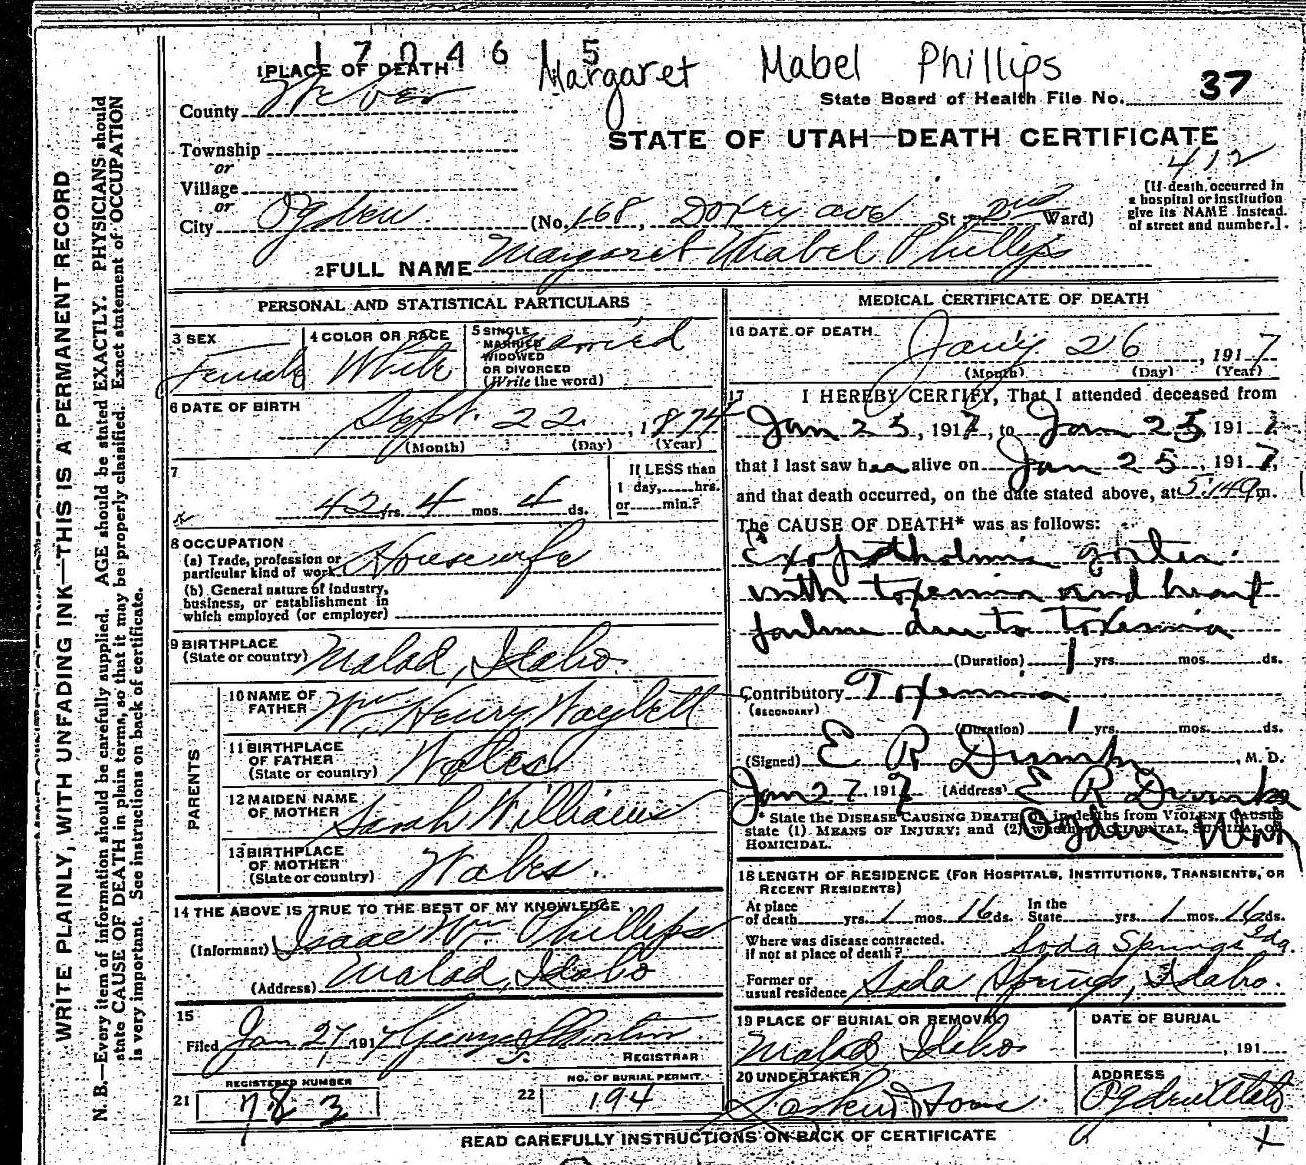 1 7 0 4 6 1 5
Margaret Mabel Phillips
1 PLACE OF DEATH
County Weber
State Board of Health File No. 37
STATE OF UTAH—DEATH CERTIFICATE
412
Township
or
Village
or
City Ogden (No. 168, Doxey ave St 2nd Ward)
[If death occurred in
a hospital or institution
give its NAME instead
of street and number.]
2 FULL NAME Margaret Mabel Phillips
PERSONAL AND STATISTICAL PARTICULARS
3 SEX Female
4 COLOR OR RACE White
5 SINGLE
MARRIED
WIDOWED
OR DIVORCED
(Write the word) Married
6 DATE OF BIRTH
Sept. 22, 1874
(Month) (Day) (Year)
7
42 yrs. 4 mos. 4 ds.
If LESS than
1 day, hrs.
or min.?
8 OCCUPATION
(a) Trade, profession or
particular kind of work Housewife
(b) General nature of industry,
business, or establishment in
which employed (or employer)
9 BIRTHPLACE
(State or country) Malad, Idaho
PARENTS
10 NAME OF
FATHER Wm Henry Waylett
11 BIRTHPLACE
OF FATHER
(State or country) Wales
12 MAIDEN NAME
OF MOTHER Sarah Williams
13 BIRTHPLACE
OF MOTHER
(State or country) Wales.
14 THE ABOVE IS TRUE TO THE BEST OF MY KNOWLEDGE
(Informant) Isaac Wm Phillips
(Address) Malad, Idaho
15
Filed Jan 27, 1917
REGISTRAR
21 REGISTERED NUMBER
783
22 NO. OF BURIAL PERMIT
194
MEDICAL CERTIFICATE OF DEATH
16 DATE OF DEATH
Jany 26, 1917
(Month) (Day) (Year)
17 I HEREBY CERTIFY, That I attended deceased from
Jan 25, 1917, to Jan 25 1917
that I last saw her alive on Jan 25, 1917,
and that death occurred, on the date stated above, at m.
The CAUSE OF DEATH* was as follows:
Exopthalmic goiter
with toxemia and heart
failure due to Toxemia
(Duration) 1 yrs. mos. ds.
Contributory Toxemia
(SECONDARY)
(Duration) 1 yrs. mos. ds.
(Signed) E R Dumke, M. D.
Jan 27 1917 (Address) E R Dumke
Ogden Utah
* State the DISEASE CAUSING DEATH, or in deaths from VIOLENT CAUSES
state (1) MEANS OF INJURY; and (2) whether ACCIDENTAL, SUICIDAL OR
HOMICIDAL.
18 LENGTH OF RESIDENCE (FOR HOSPITALS, INSTITUTIONS, TRANSIENTS, OR
RECENT RESIDENTS)
At place
of death yrs. 1 mos. 16 ds.
In the
State yrs. 1 mos. 16 ds.
Where was disease contracted,
if not at place of death? Soda Springs Ida.
Former or
usual residence Soda Springs, Idaho.
19 PLACE OF BURIAL OR REMOVAL
Malad Idaho
DATE OF BURIAL
, 191
20 UNDERTAKER
Larkin & Sons.
ADDRESS
Ogden Utah
READ CAREFULLY INSTRUCTIONS ON BACK OF CERTIFICATE
WRITE PLAINLY, WITH UNFADING INK—THIS IS A PERMANENT RECORD
N. B.—Every item of information should be carefully supplied. AGE should be stated EXACTLY. PHYSICIANS should
state CAUSE OF DEATH in plain terms, so that it may be properly classified. Exact statement of OCCUPATION
is very important. See instructions on back of certificate.